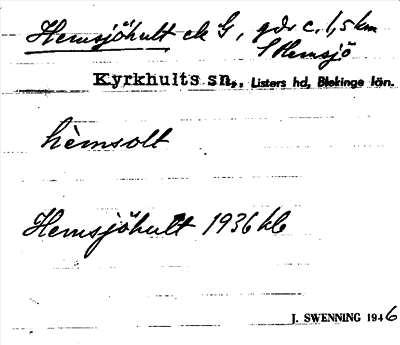 Hemsjöhult ek G, gdr c. 1,5 km
S Hemsjö
Kyrkhults sn., Listers hd, Blekinge län.
hèmsolt
Hemsjöhult 1936 kb
J. SWENNING 1946